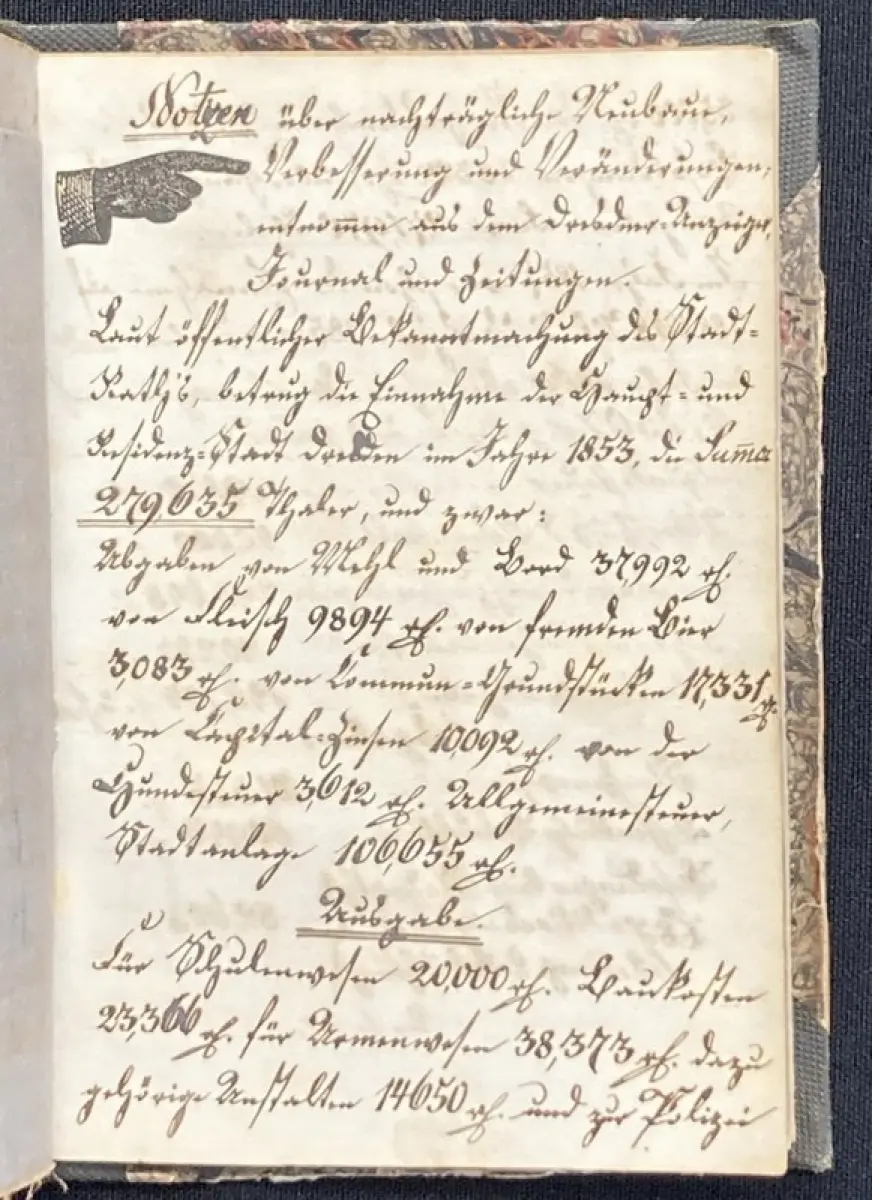 Notizen über nachträgliche Neubaue,
Verbesserung und Veränderungen,
entnommen aus dem Dresdner-Anzeiger,
Journal und Zeitungen.
Laut öffentlicher Bekanntmachung des Stadt-
Raths, betrug die Einnahme der Haupt- und
Residenz-Stadt Dresden im Jahre 1853, die Summa
279,635 Thaler, und zwar:
Abgaben von Mehl und Brod 37,992 rℓ.
von Fleisch 9894 rℓ. von fremden Bier
3,083 rℓ. von Commun-Grundstücken 17,331 rℓ.
von Capital-Zinsen 10,092 rℓ. von der
Hundesteuer 3,612 rℓ. Allgemeinesteuer,
Stadtanlage 106,655 rℓ.
Ausgabe.
Für Schulenwesen 20,000 rℓ. Baukosten
23,366 rℓ. für Armenwesen 38,373 rℓ. dazu
gehörige Anstalten 14650 rℓ. und zur Polizei